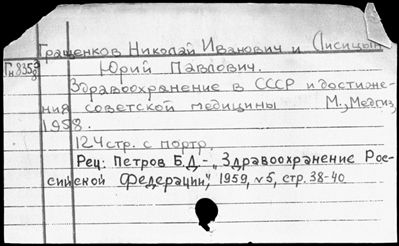 Гращенков Николай Иванович и Лисицын
Гн8353
Юрий Павлович.
Здравоохранение в СССР и достиже-
ния советской медицины М., Медгиз,
1958.
124 стр. с портр.
Рец: Петров Б.Д.-„Здравоохранение Рос-
сийской Федерации", 1959, №5, стр. 38-40